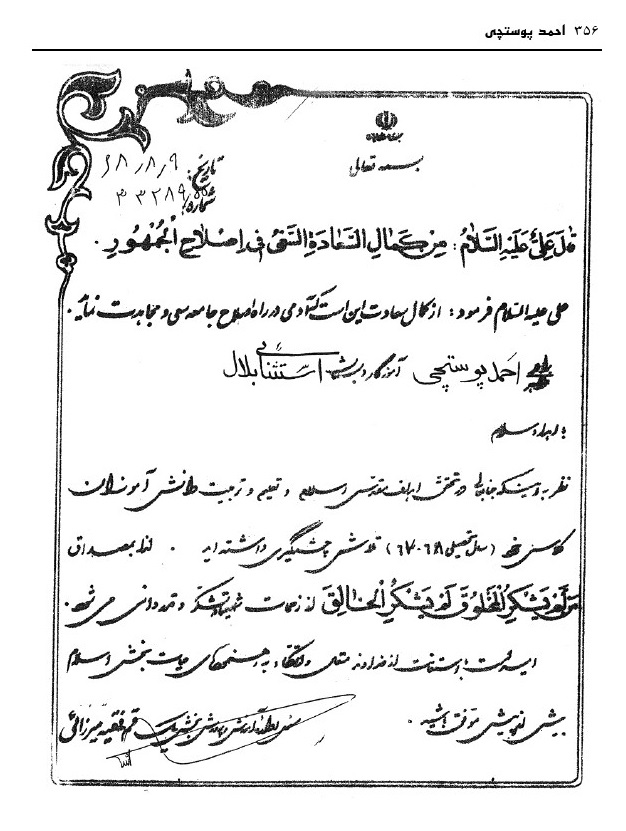 ۳۵۶ احمد پوستچی
بسمه تعالی
تاریخ: ۶۸/۸/۹
شماره: ۳۳۲۸۹/۵۵
قالَ عَلِیٌّ عَلَیْهِ السَّلامُ: مِنْ کَمالِ السَّعادَةِ السَّعْیُ فی اِصْلاحِ الْجُمْهُورِ.
علی علیه السلام فرمود: از کمال سعادت این است که آدمی در راه اصلاح جامعه سعی و مجاهدت نماید.
احمد پوستچی آموزگار دبستان استثنایی بلال
با اهداء سلام
نظر به اینکه جنابعالی در تحقق اهداف مقدس اسلام و تعلیم و تربیت دانش آموزان
کلاس خود (سال تحصیلی ۶۸-۶۷) تلاش چشمگیری داشته اید. لذا بمصداق
مَنْ لَمْ یَشْکُرِ الْمَخْلُوقَ لَمْ یَشْکُرِ الْخالِقَ از زحمات شما تشکر و قدردانی می شود.
امید است با استعانت از خداوند متعال و اتکاء به چشمه‌های حیات بخش اسلام
بیش از پیش موفق باشید.
آموزش و پرورش بخش یک قم فقیه میرزائی